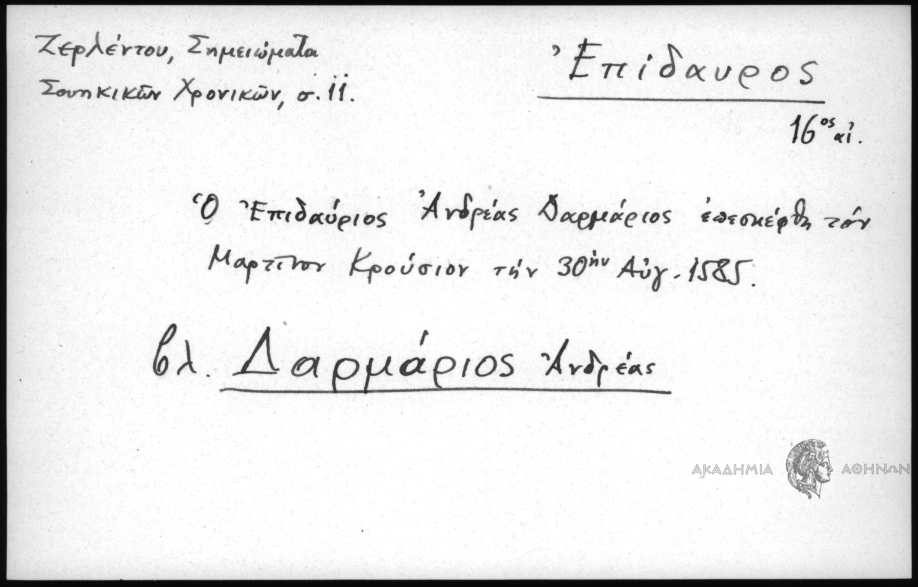 Ζερλέντου, Σημειώματα
Σουηκικῶν Χρονικῶν, σ. 11.
Ἐπίδαυρος
16ος αἰ.
Ὁ Ἐπιδαύριος Ἀνδρέας Δαρμάριος ἐπεσκέφθη τὸν
Μαρτῖνον Κρούσιον τὴν 30ὴν Αὐγ. 1585.
βλ. Δαρμάριος Ἀνδρέας
ΑΚΑΔΗΜΙΑ ΑΘΗΝΩΝ